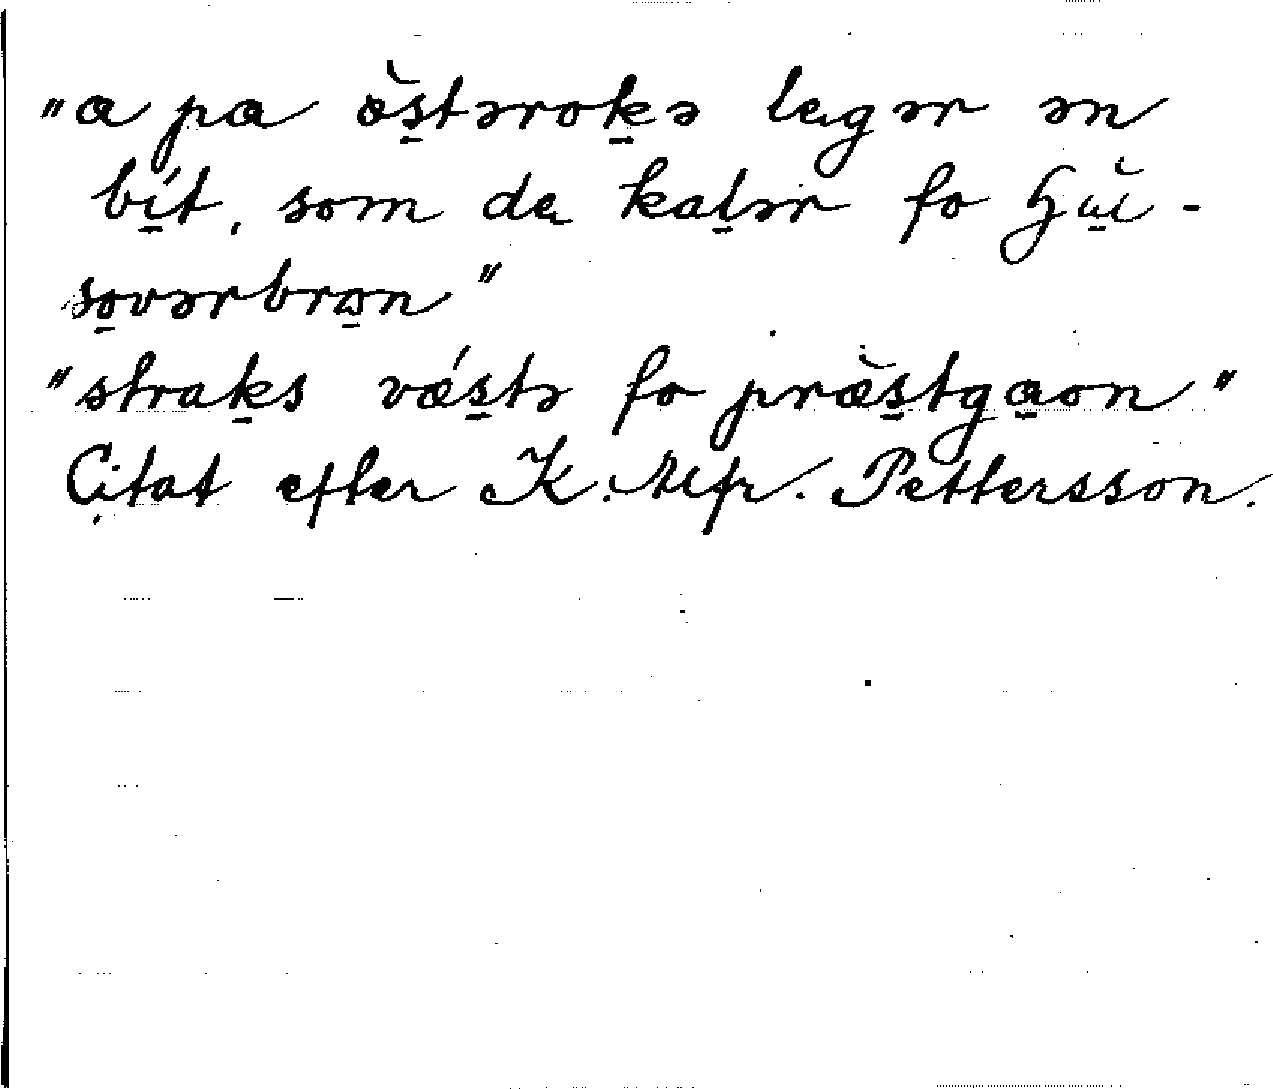 "a pa ø̀s̠təroḵə lægər ən
bí̠t, som de kaḻər fo hu̠i -
so̠vərbrɷ̠n"
"straḵs vǽs̠tə fo præ̀s̠tga̠on"
Citat efter K. Alfr. Pettersson.